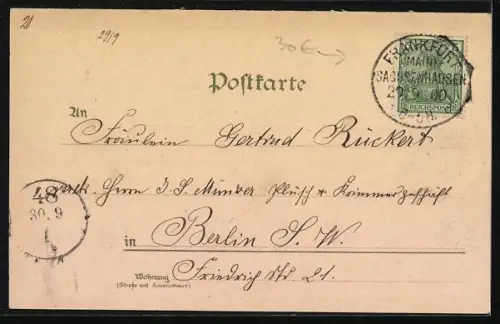 21
29/9
30 €
FRANKFURT
(MAIN)
SACHSENHAUSEN
29.9.00.
REICHSPOST
Postkarte
An
Fräulein Gertrud Rückert
adr. Herrn J. S. Munzer Plüsch u Krimmergeschäft
48
30.9
in Berlin S. W.
Wohnung Friedrich Str 21.
(Straße und Hausnummer)